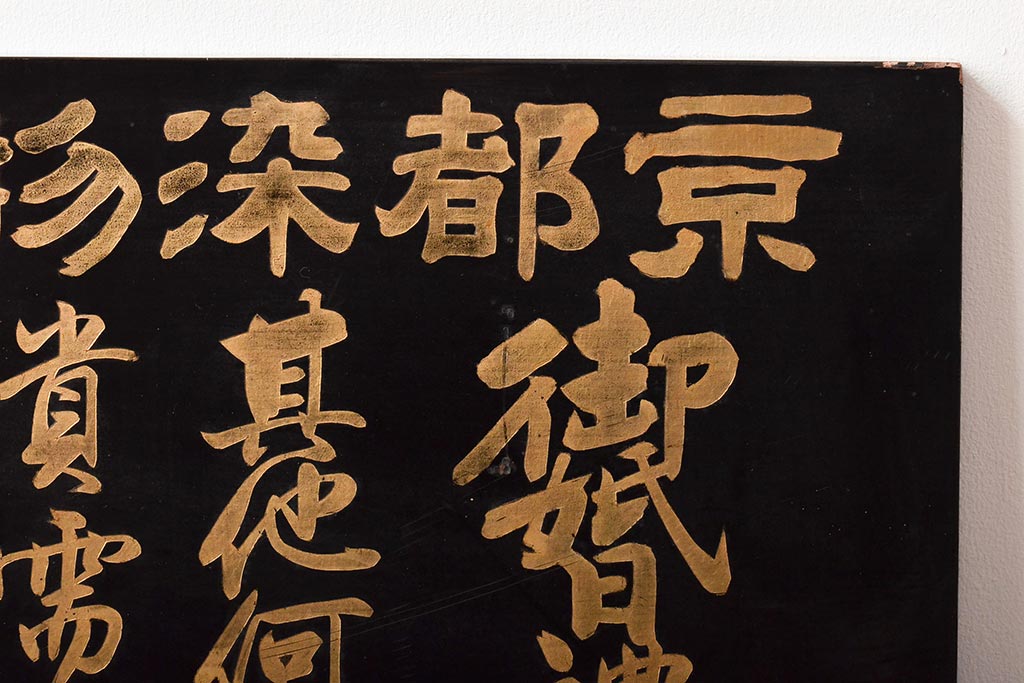 京都染物
御婚禮
其他何
貴需